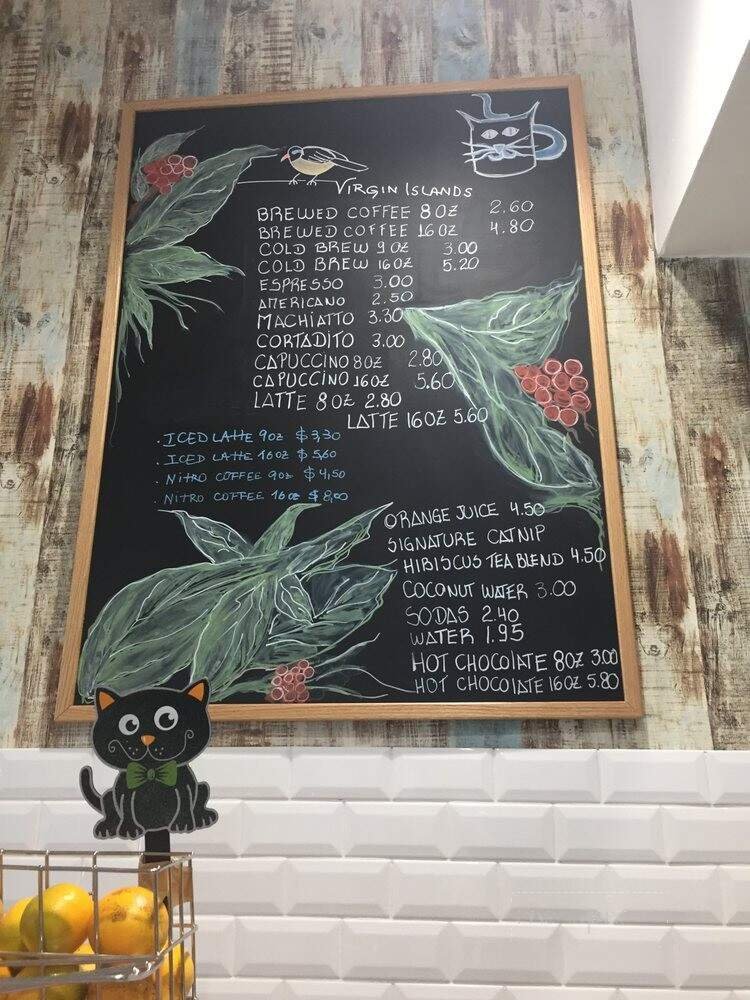 VIRGIN ISLANDS
BREWED COFFEE 8OZ 2.60
BREWED COFFEE 16OZ 4.80
COLD BREW 9OZ 3.00
COLD BREW 16OZ 5.20
ESPRESSO 3.00
AMERICANO 2.50
MACHIATTO 3.30
CORTADITO 3.00
CAPUCCINO 8OZ 2.80
CAPUCCINO 16OZ 5.60
LATTE 8OZ 2.80
LATTE 16OZ 5.60
. ICED LATTE 9OZ $3,30
. ICED LATTE 16OZ $5,60
. NITRO COFFEE 9OZ $4,50
. NITRO COFFEE 16OZ $8,00
ORANGE JUICE 4.50
SIGNATURE CATNIP
HIBISCUS TEA BLEND 4.50
COCONUT WATER 3.00
SODAS 2.40
WATER 1.95
HOT CHOCOLATE 8OZ 3.00
HOT CHOCOLATE 16OZ 5.80